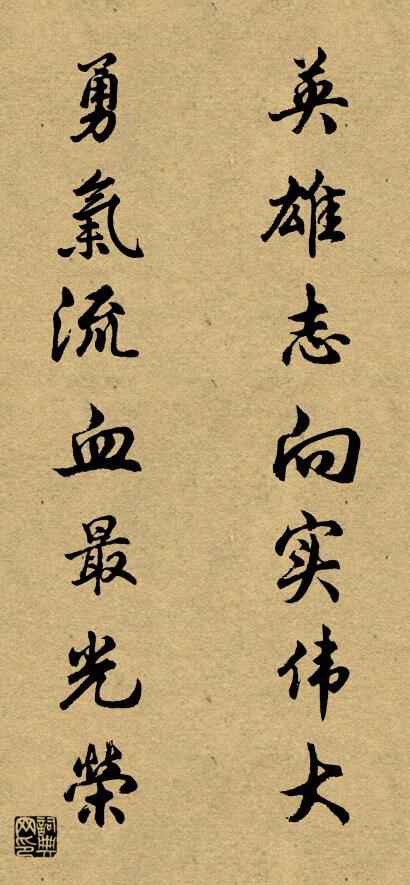 英雄志向实伟大
勇氣流血最光榮
詞典网印